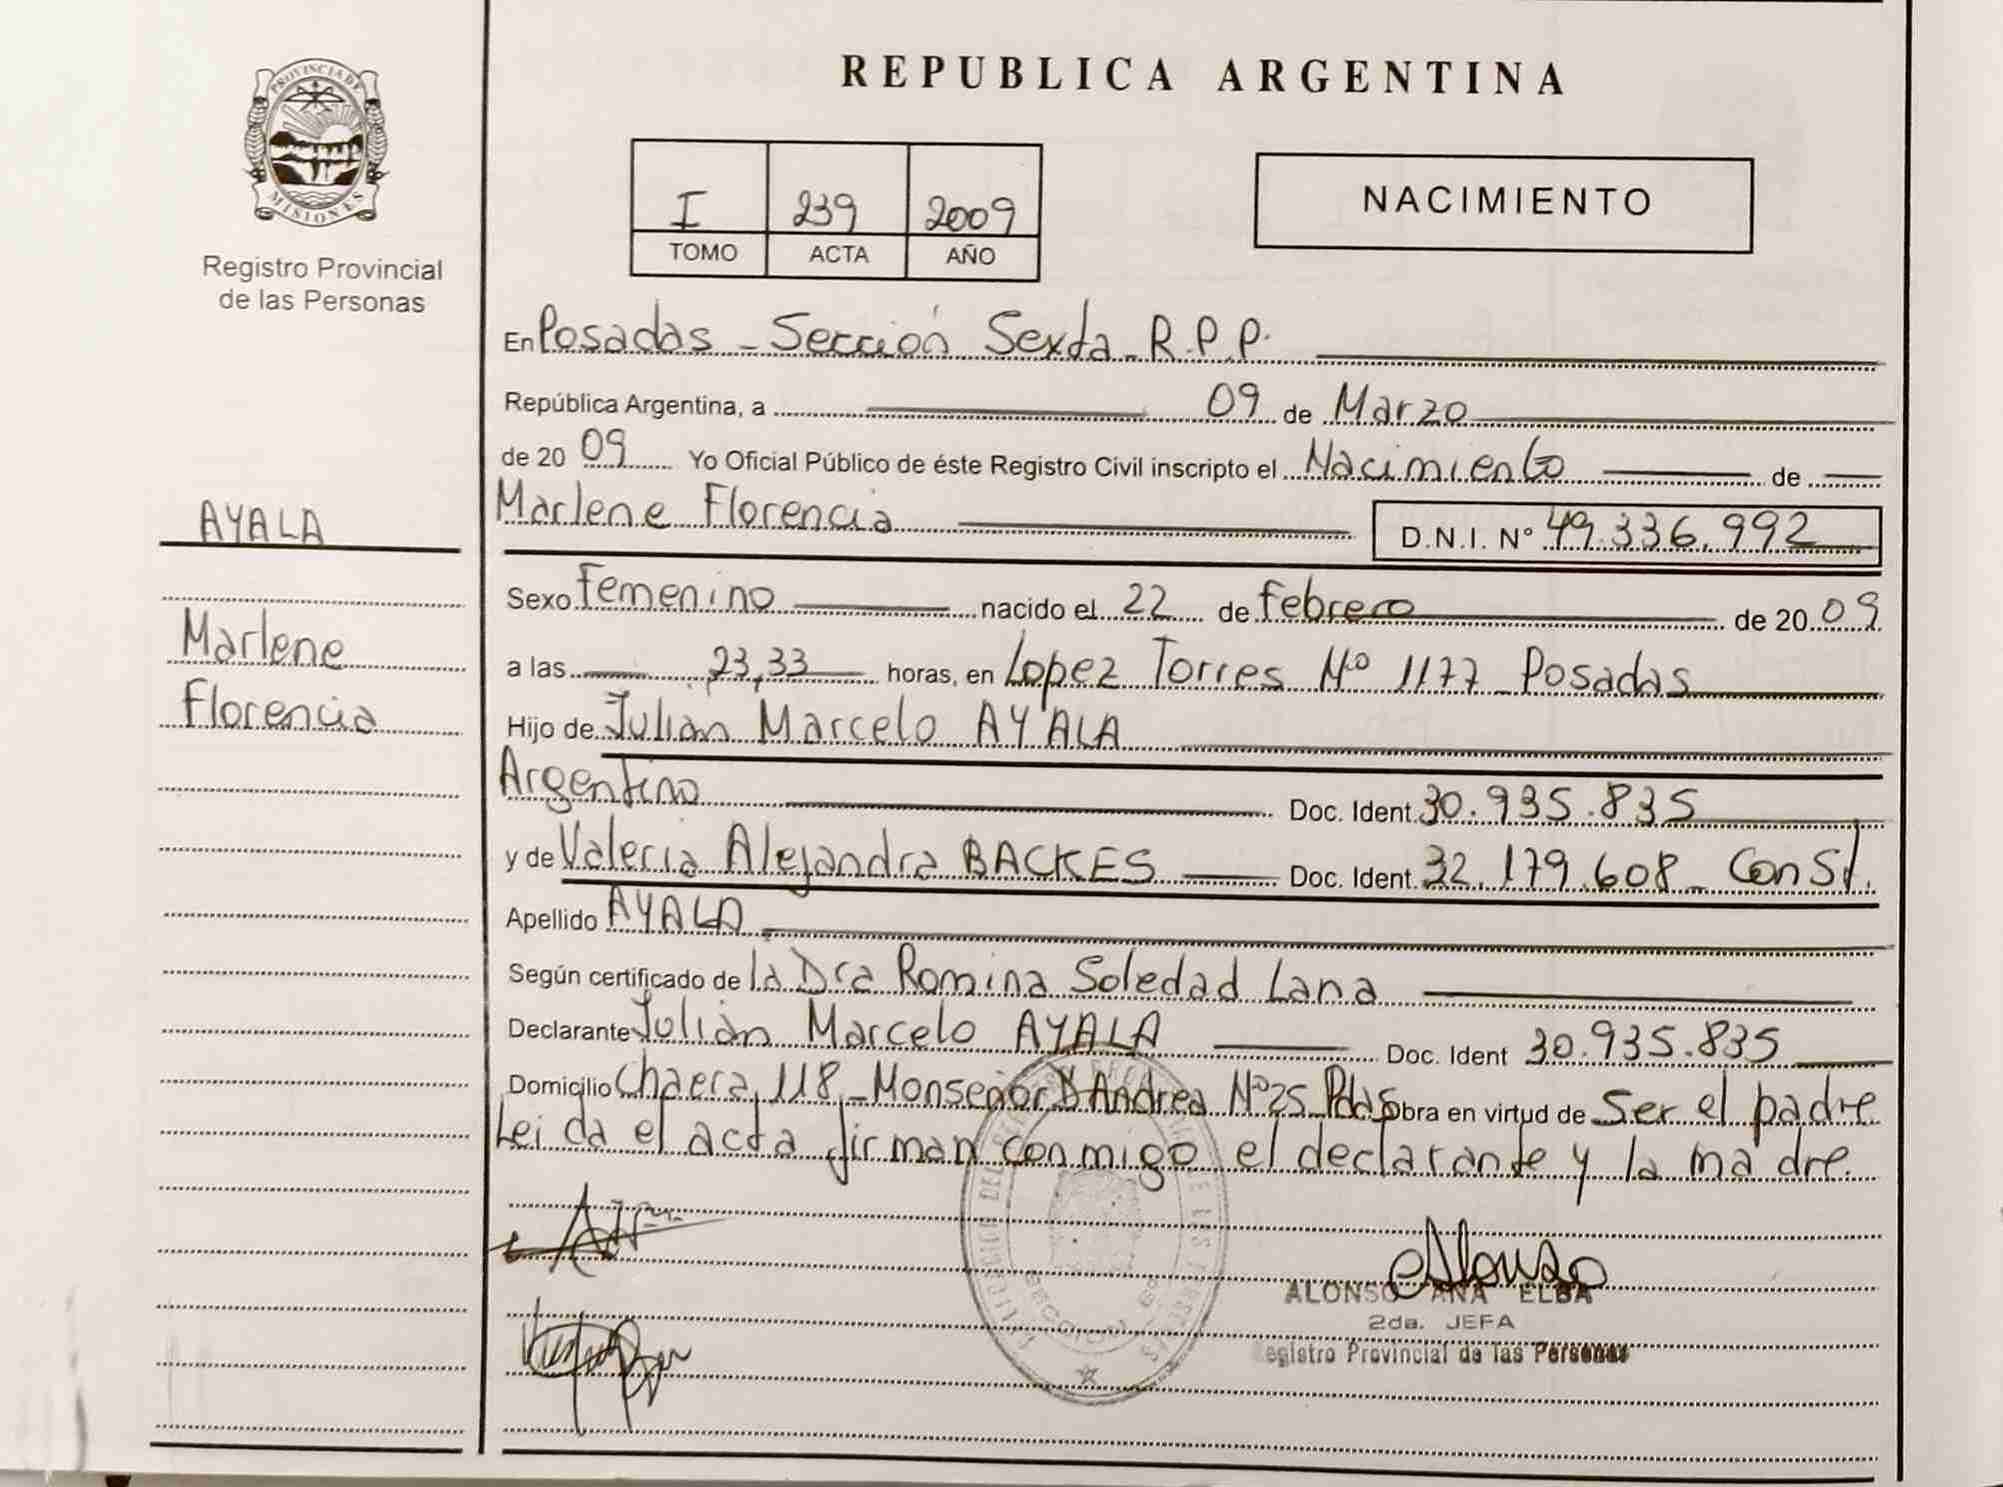 PROVINCIA DE
MISIONES
Registro Provincial
de las Personas
AYALA
Marlene
Florencia
REPUBLICA ARGENTINA
I 239 2009
TOMO ACTA AÑO
NACIMIENTO
En Posadas - Sección Sexta - R.P.P.
República Argentina, a 09 de Marzo
de 20 09 Yo Oficial Público de éste Registro Civil inscripto el Nacimiento de
Marlene Florencia D.N.I. Nº 49.336.992
Sexo Femenino nacido el 22 de febrero de 20 09
a las 23,33 horas, en Lopez Torres Nº 1177 Posadas
Hijo de Julián Marcelo AYALA
Argentino Doc. Ident. 30.935.835
y de Valeria Alejandra BACKES Doc. Ident. 32.179.608 - Const.
Apellido AYALA
Según certificado de la Dra Romina Soledad Lana
Declarante Julián Marcelo AYALA Doc. Ident 30.935.835
Domicilio Chacra 118 - Monseñor D'Andrea Nº 25 Pdas Obra en virtud de Ser el padre
Leida el acta firman conmigo el declarante y la madre.
Alonso
ALONSO ANA ELBA
2da. JEFA
Registro Provincial de las Personas